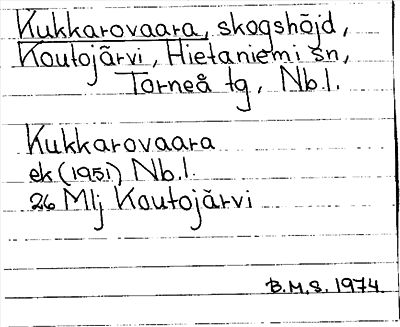 Kukkarovaara, skogshöjd,
Koutojärvi, Hietaniemi sn,
Torneå tg, Nb.l.
Kukkarovaara
ek (1951) Nb.l.
26 Mlj Koutojärvi
B.M.S. 1974